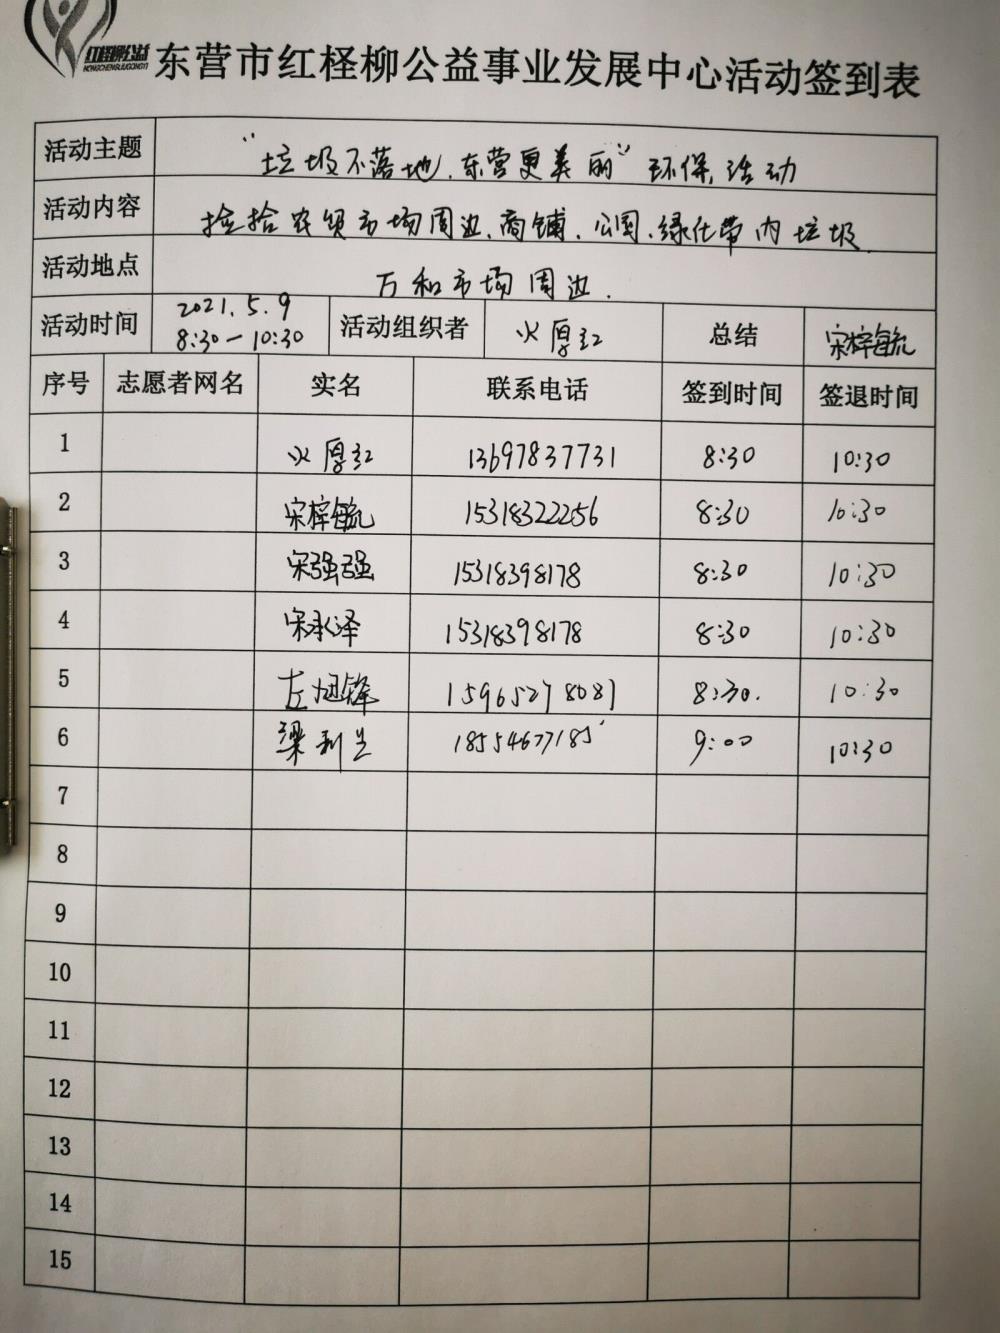 红柽柳公益
HONGCHENGLIUGONGYI
东营市红柽柳公益事业发展中心活动签到表
活动主题 “垃圾不落地.东营更美丽”环保活动
活动内容 捡拾农贸市场周边、商铺、公园、绿化带内垃圾.
活动地点 万和市场周边.
活动时间 2021.5.9 8:30—10:30 活动组织者 火厚红 总结 宋梓毓
序号 志愿者网名 实名 联系电话 签到时间 签退时间
1 火厚红 13697837731 8:30 10:30
2 宋梓毓 15318322256 8:30 10:30
3 宋强强 15318398178 8:30 10:30
4 宋承泽 15318398178 8:30 10:30
5 左旭锋 15965278087 8:30. 10:30
6 梁利兰 18554677185 9:00 10:30
7
8
9
10
11
12
13
14
15